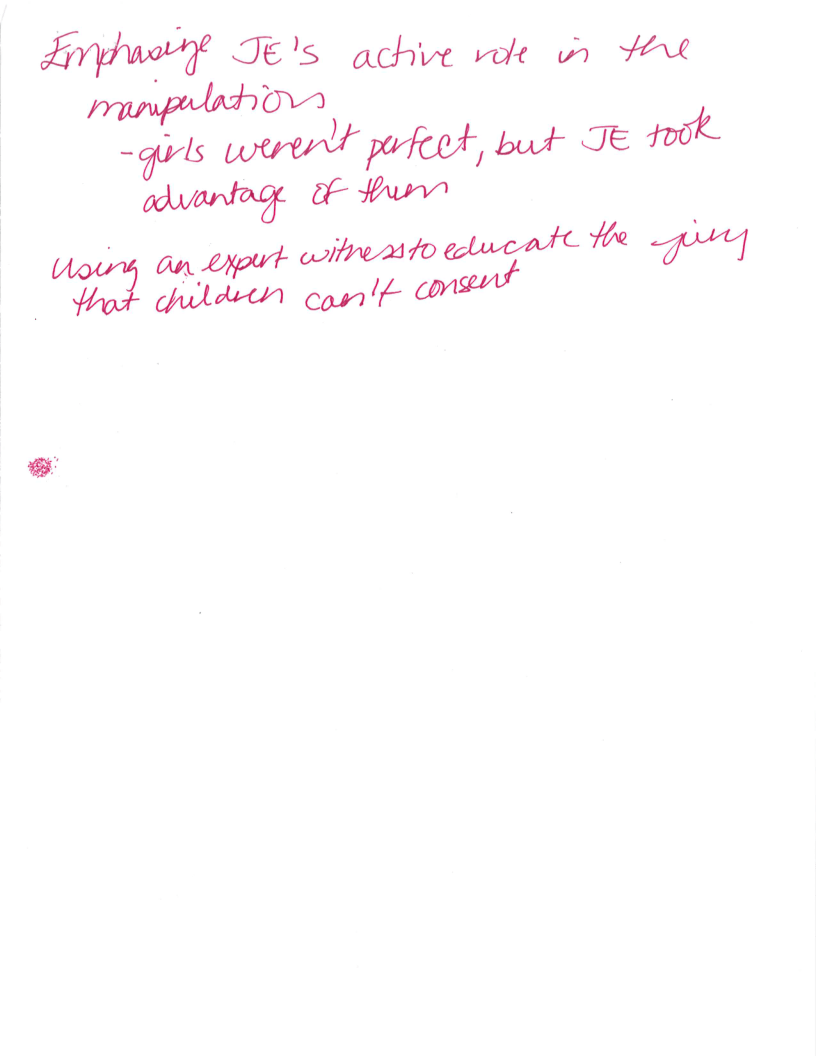 Emphasize JE's active role in the
manipulations
-girls weren't perfect, but JE took
advantage of them
Using an expert witness to educate the jury
that children can't consent